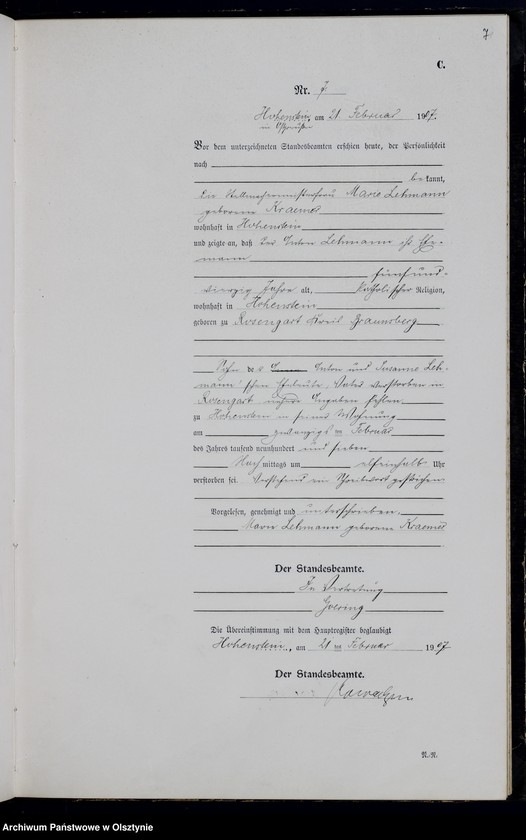 7
C.
Nr. 7.
Hohenstein, am 21. Februar 1907.
in Ostpreußen
Vor dem unterzeichneten Standesbeamten erschien heute, der Persönlichkeit
nach
bekannt,
die Stellmachermeisterfrau Marie Lehmann
geborene Kraemer
wohnhaft in Hohenstein
und zeigte an, daß der Anton Lehmann ihr Ehe-
mann
fünfund-
vierzig Jahre alt, katholischer Religion,
wohnhaft in Hohenstein
geboren zu Rosengart Kreis Braunsberg
Sohn des Anton und Susanna Leh-
mann'schen Eheleute, Vater verstorben in
Rosengart nähere Angaben fehlen
zu Hohenstein in seiner Wohnung
am zwanzigsten Februar
des Jahres tausend neunhundert und sieben
Nachmittags um elfeinhalb Uhr
verstorben sei. Vorstehend ein Druckwort gestrichen
Vorgelesen, genehmigt und unterschrieben.
Marie Lehmann geborene Kraemer
Der Standesbeamte.
In Vertretung
Goering
Die Übereinstimmung mit dem Hauptregister beglaubigt
Hohenstein, am 21ten Februar 1907
Der Standesbeamte.
N.N.
Archiwum Państwowe w Olsztynie